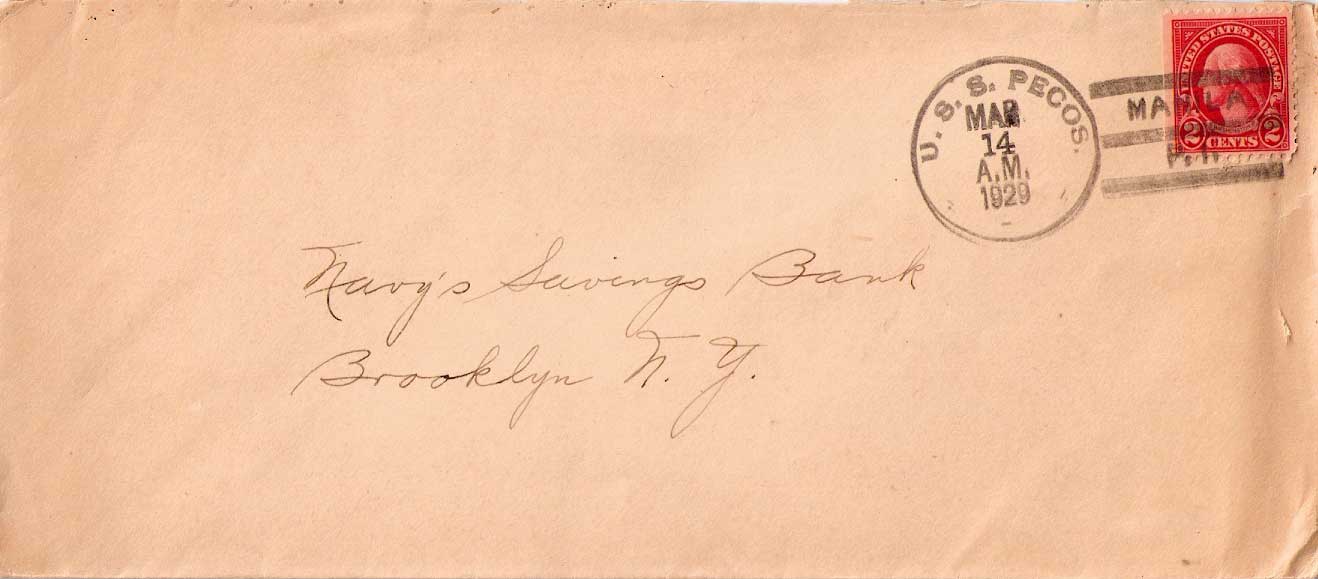 UNITED STATES POSTAGE
2 CENTS 2
U. S. S. PECOS.
MAR
14
A.M.
1929
MANILA
P. I.
Navy's Savings Bank
Brooklyn N. Y.